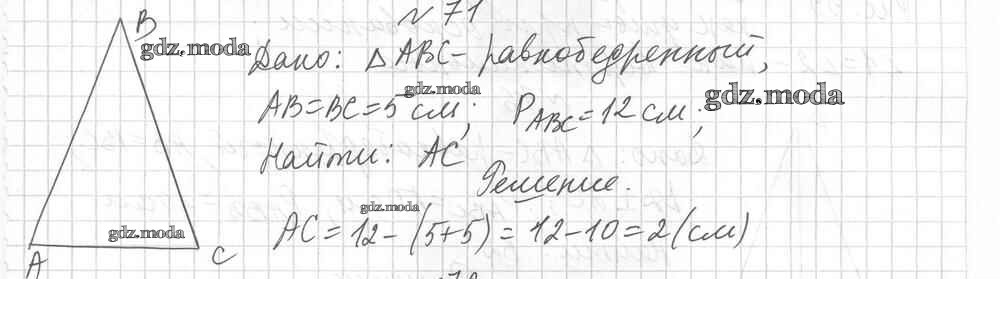 № 71
B
gdz.moda
Дано: △ ABC - равнобедренный,
gdz.moda
AB=BC=5 см; P_ABC = 12 см;
gdz.moda
Найти: AC
Решение.
gdz.moda
AC = 12 - (5+5) = 12 - 10 = 2 (см)
gdz.moda
A C